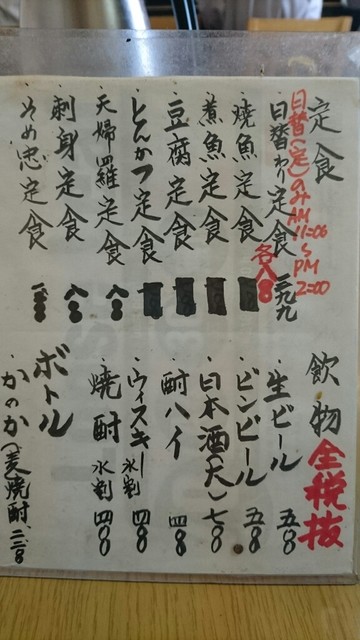 定食
日替(定)のみ AM 11:00 〜 PM 2:00
・日替わり定食 六九九
・焼魚定食
各八〇〇
・煮魚定食
・豆腐定食
・とんかつ定食
・天婦羅定食 八〇〇
・刺身定食 八〇〇
・そめ忠定食
飲物
全税抜
・生ビール 五〇〇
・ビンビール 五〇〇
・日本酒(大) 七〇〇
・酎ハイ 四〇〇
・ウィスキー 水割 四〇〇
・焼酎 水割 四〇〇
ボトル
・かのか(麦焼酎、二、三〇〇